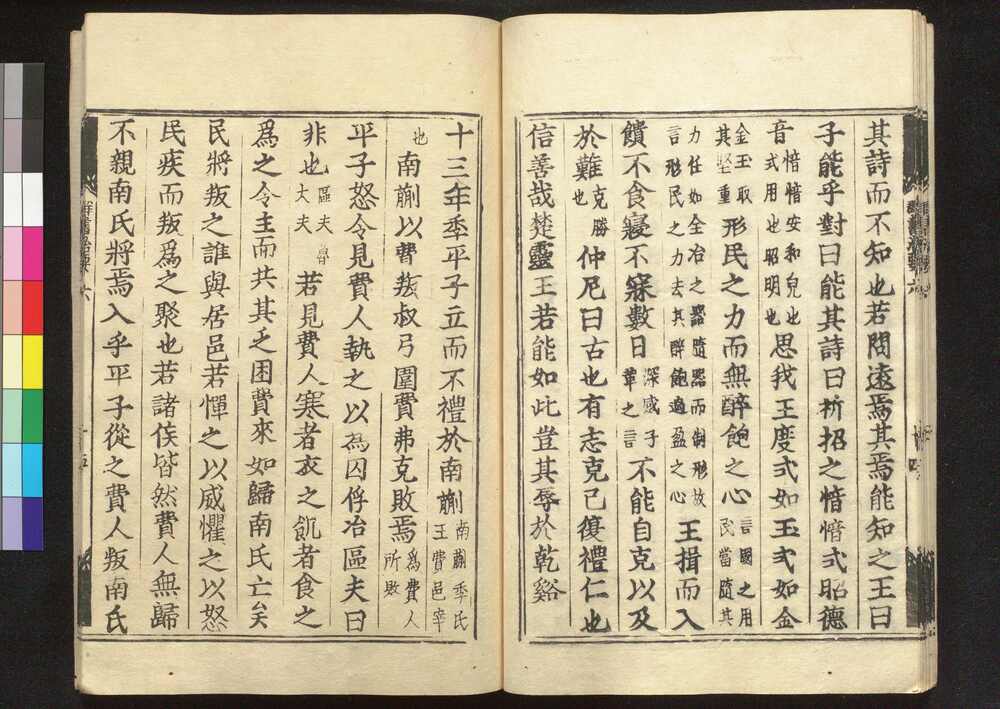 其詩而不知也若問遠焉其焉能知之王曰
子能乎對曰能其詩曰祈招之愔愔式昭德
音愔愔安和皃也式用也昭明也思我王度式如玉式如金
金玉取其堅重形民之力而無醉飽之心言國之用民當隨其
力任如金冶之器隨器而制形故言形民之力去其醉飽過盈之心王揖而入
饋不食寢不寐數日深感子革之言不能自克以及
於難克勝也仲尼曰古也有志克己復禮仁也
信善哉楚靈王若能如此豈其辱於乾谿
十三年季平子立而不禮於南蒯南蒯季氏王費邑宰
也南蒯以費叛叔弓圍費弗克敗焉為費人所敗
平子怒令見費人執之以為囚俘冶區夫曰
非也區夫魯大夫若見費人寒者衣之飢者食之
爲之令主而共其乏困費來如歸南氏亡矣
民將叛之誰與居邑若憚之以威懼之以怒
民疾而叛爲之聚也若諸侯皆然費人無歸
不親南氏將焉入乎平子從之費人叛南氏
群書治要六